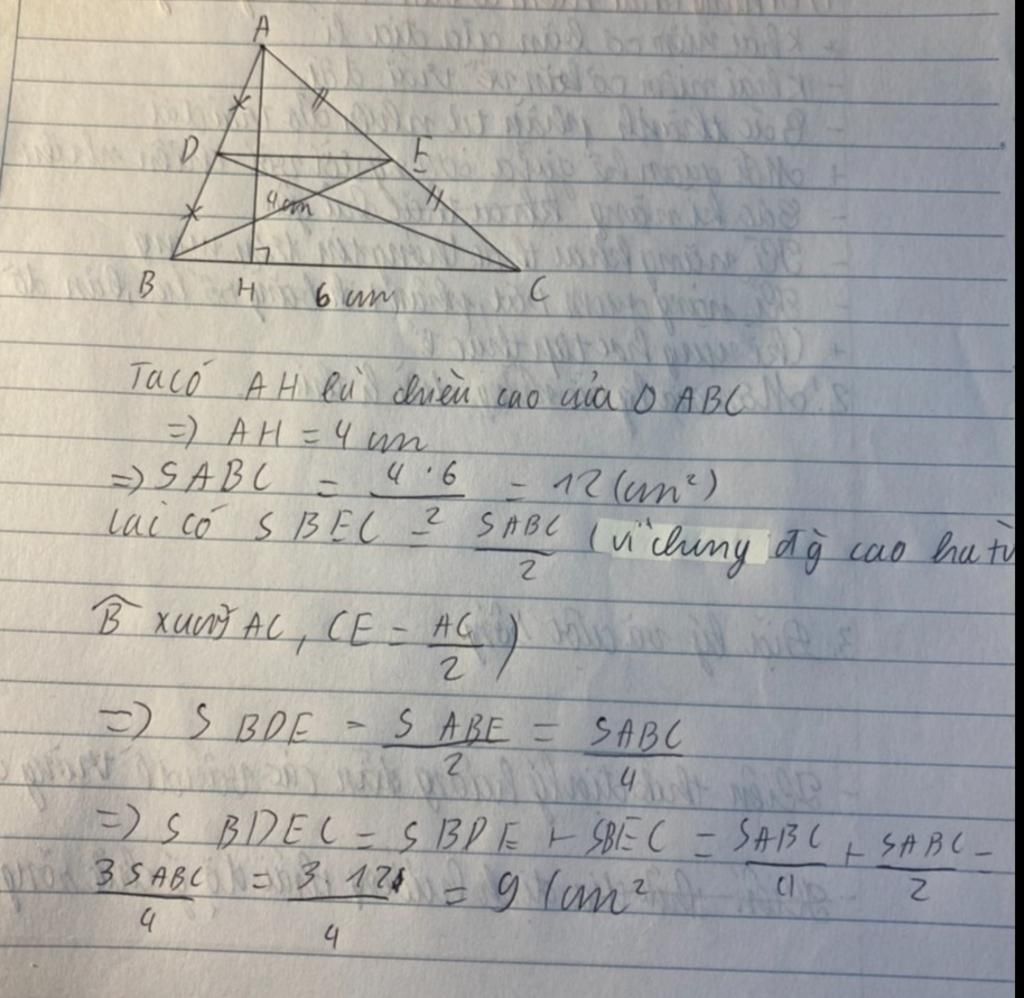 A
D
E
4cm
B
H
6 cm
C
Ta có AH là chiều cao của Δ ABC
=> AH = 4 cm
=> SABC = 4 . 6 / 2 = 12 (cm²)
lại có S BEC = SABC / 2 (vì chung đg cao hạ từ
B xuống AC, CE = AC / 2)
=> S BDE = S ABE / 2 = SABC / 4
=> S BDEC = S BDE + SBEC = SABC / 4 + SABC / 2 =
3 SABC / 4 = 3 . 12 / 4 = 9 (cm²